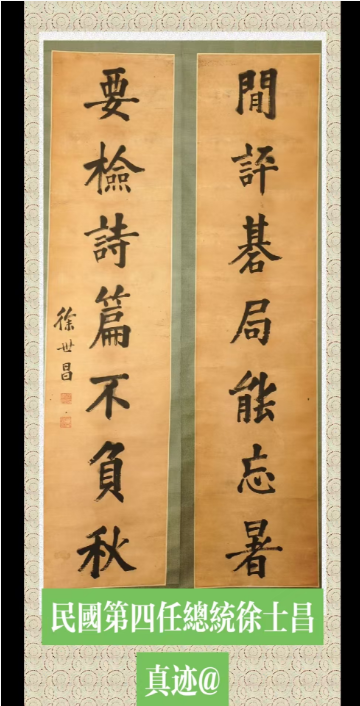 閒評碁局能忘暑
要檢詩篇不負秋
徐世昌
民國第四任總統徐士昌
真迹@